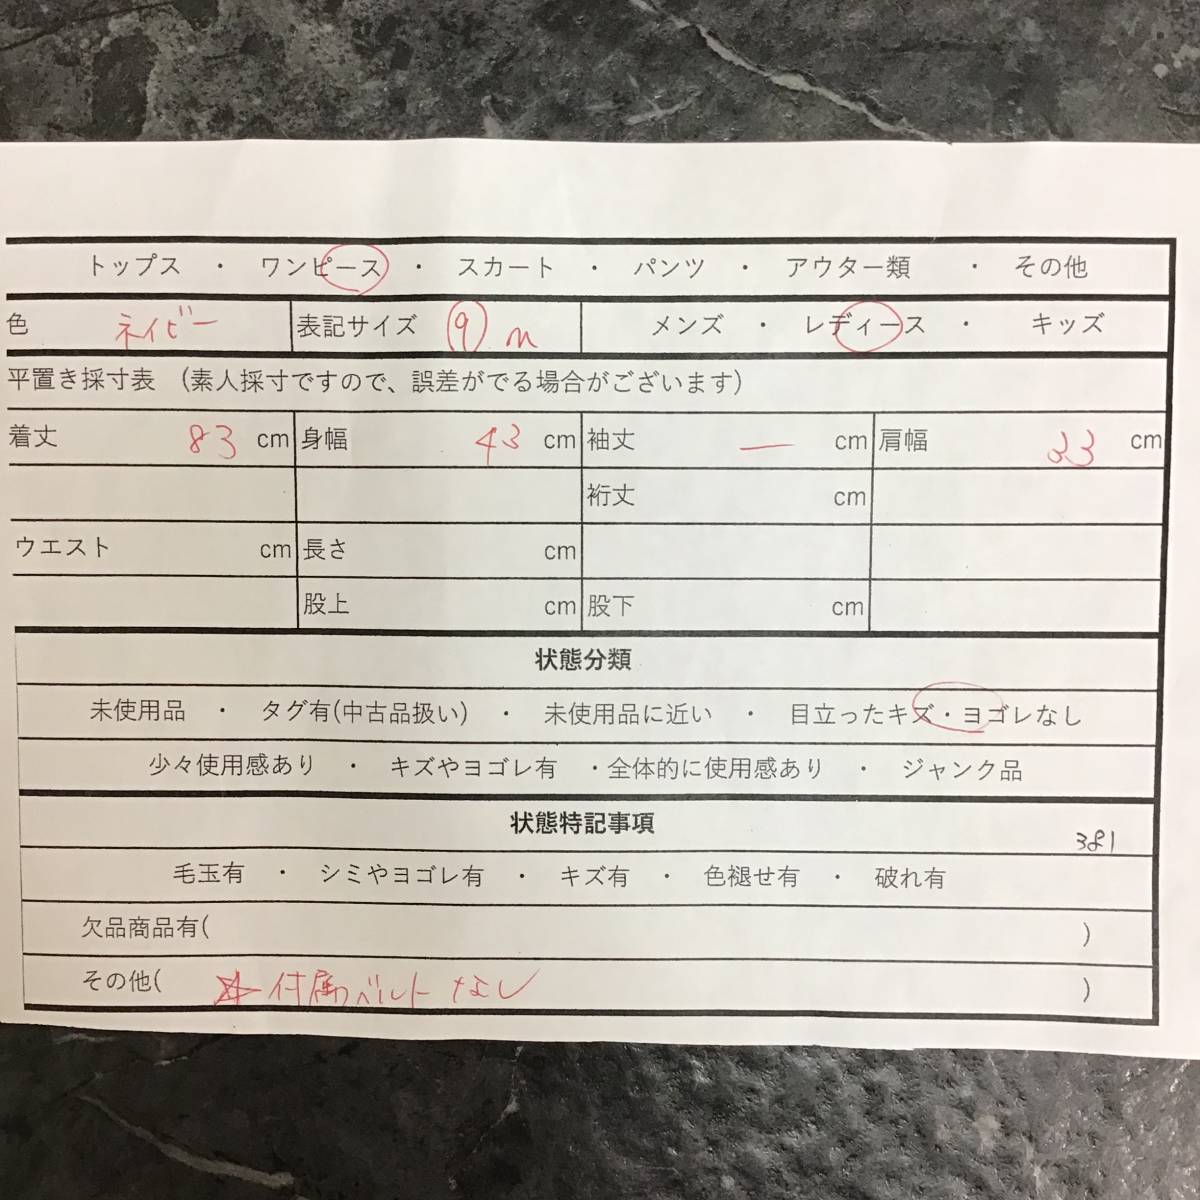 トップス ・ ワンピース ・ スカート ・ パンツ ・ アウター類 ・ その他
色 ネイビー 表記サイズ ⑨ m メンズ ・ レディース ・ キッズ
平置き採寸表 (素人採寸ですので、誤差がでる場合がございます)
着丈 83 cm 身幅 43 cm 袖丈 — cm 肩幅 33 cm
裄丈 cm
ウエスト cm 長さ cm
股上 cm 股下 cm
状態分類
未使用品 ・ タグ有(中古品扱い) ・ 未使用品に近い ・ 目立ったキズ・ヨゴレなし
少々使用感あり ・ キズやヨゴレ有 ・全体的に使用感あり ・ ジャンク品
状態特記事項 381
毛玉有 ・ シミやヨゴレ有 ・ キズ有 ・ 色褪せ有 ・ 破れ有
欠品商品有( )
その他( 付属ベルトなし )